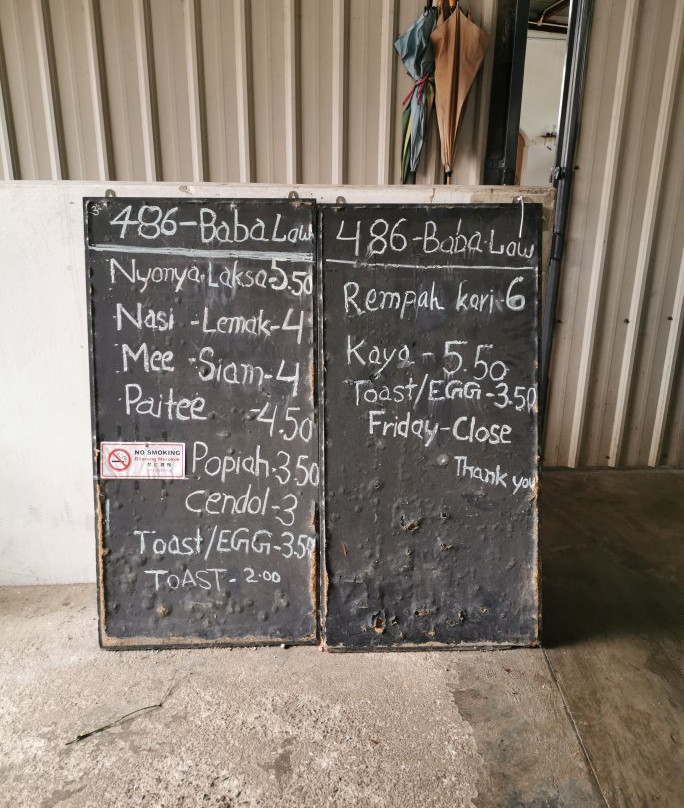 486-Baba Law
Nyonya-Laksa-5.50
Nasi -Lemak-4
Mee -Siam-4
Paitee -4.50
NO SMOKING
Dilarang Merokok
Popiah-3.50
cendol-3
Toast/EGG-3.50
TOAST-2.00
486-Baba-Law
Rempah kari-6
Kaya-5.50
Toast/EGG-3.50
Friday-Close
Thank you